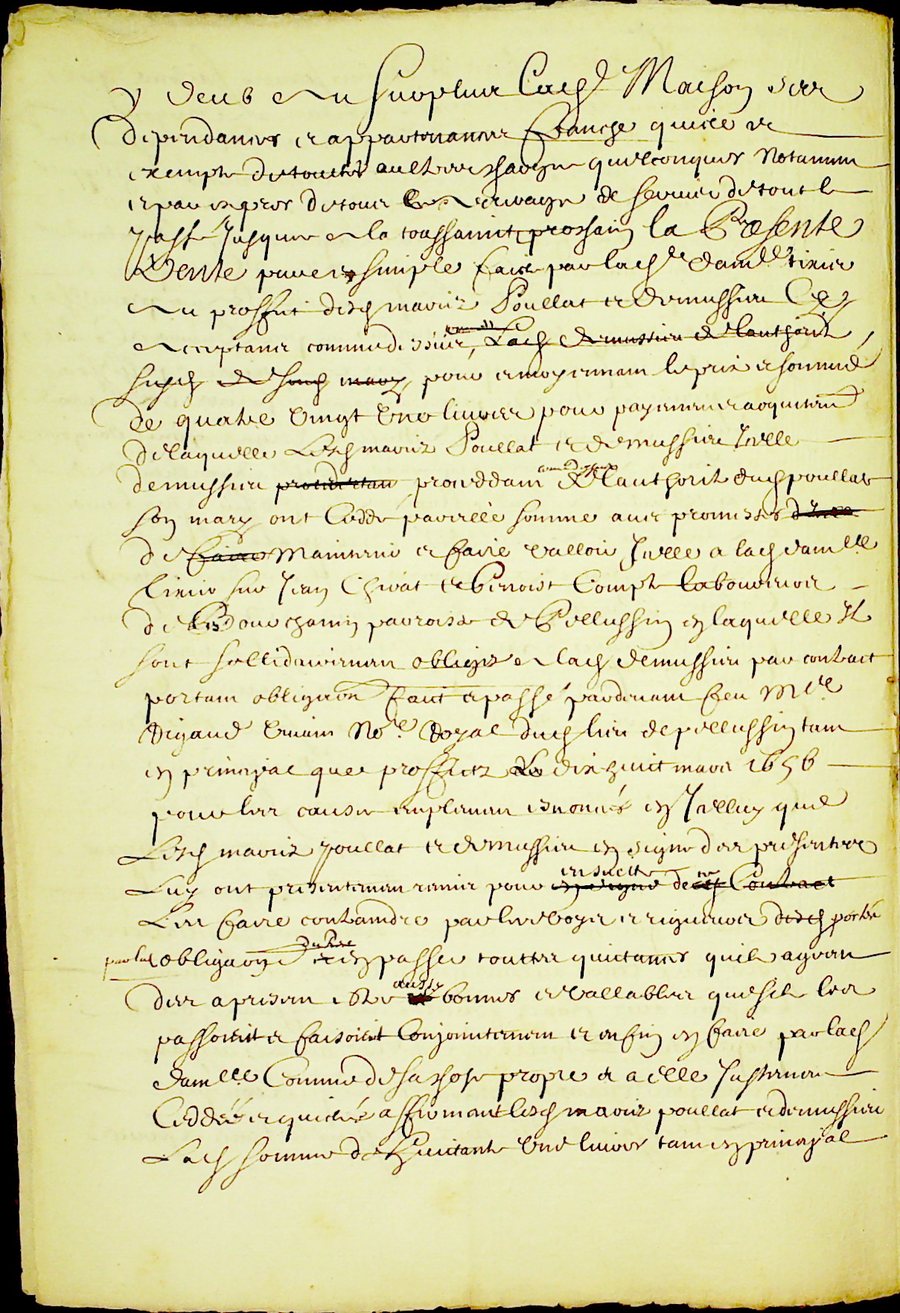 y deub en su surplus lad maison ses
dependances et appartenances franche quicte et
exempte de toutes aultres charges quelconques notamment
et par expres de tous les arrerages de service de tout le
passé jusques a la toussainct prochain la Presente
Vente pure et simple faite par lad dam^lle tixier
au proffit desd mariez Poullat et demussieu
acceptants comme dessus, lad demussieu de l'authorité
susd de sond mary pour et moyennant le prix et somme
de quatre vingt une livres pour payement et acquittem^t
de laquelle lesd mariez Poullat et demussieu Icelle
demussieu proceddant de l'authorité dud poullat
son mary ont ceddé pareille somme avec promesses d'icelle
de faire maintenir et faire valloir Icelle a lad dam^lle
tixier sur Jean Chirat et Benoist Compte laboureurs
de Bouchain parroisse de Pellussin en laquelle Ils
sont sollidairement obligez a lad demussieu par contract
portant obligation faict et passé pardevant feu M^re
Rigaud vivant No^re Royal dud lieu de pellussin tant
en principal que proffictz le dix huict mars 1656
pour les causes amplement enoncés en Icelluy que
lesd mariez poullat et demussieu en signe des presentes
luy ont presentement remis pour ensuitte en signe de ce Contract
les faire contraindre par les voyes et rigueurs desd portés
par lad obligation en passer touttes quittances quils ayent
des a present estre aussy bonnes et vallables que sils les
passoient et faisoient Conjointement et enfin en faire par lad
dam^lle Comme de sa chose propre et a elle Justement
Ceddée et quictée affirmant lesd mariez poullat et demussieu
Lad somme de huictante une livres tant en principal